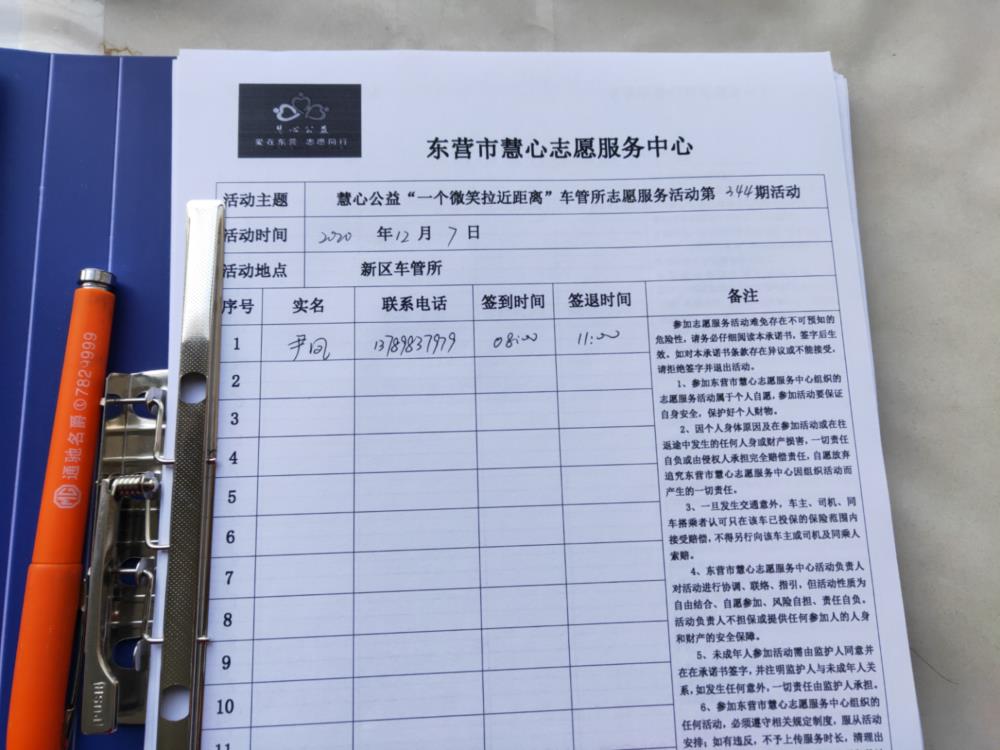 慧心公益
爱在东营 志愿同行
东营市慧心志愿服务中心
活动主题 慧心公益“一个微笑拉近距离”车管所志愿服务活动第 344期活动
活动时间 2020 年12月 7 日
活动地点 新区车管所
序号 实名 联系电话 签到时间 签退时间 备注
1 尹凤 13789837979 08:00 11:00
2
3
4
5
6
7
8
9
10
11
参加志愿服务活动难免存在不可预知的
危险性,请务必仔细阅读本承诺书,签字后生
效。如对本承诺书条款存在异议或不能接受,
请拒绝签字并退出活动。
1、参加东营市慧心志愿服务中心组织的
志愿服务活动属于个人自愿,参加活动要保证
自身安全,保护好个人财物。
2、因个人身体原因及在参加活动或在往
返途中发生的任何人身或财产损害,一切责任
自负或由侵权人承担完全赔偿责任,自愿放弃
追究东营市慧心志愿服务中心因组织活动而
产生的一切责任。
3、一旦发生交通意外,车主、司机、同
车搭乘者认可只在该车已投保的保险范围内
接受赔偿,不得另行向该车主或司机及同乘人
索赔。
4、东营市慧心志愿服务中心活动负责人
对活动进行协调、联络、指引,但活动性质为
自由结合、自愿参加、风险自担、责任自负。
活动负责人不担保或提供任何参加人的人身
和财产的安全保障。
5、未成年人参加活动需由监护人同意并
在在承诺书签字,并注明监护人与未成年人关
系,如发生任何意外,一切责任由监护人承担。
6、参加东营市慧心志愿服务中心组织的
任何活动,必须遵守相关规定制度,服从活动
安排;如有违反,不予上传服务时长,清理出
通驰名爵 ✆7829999
PUSH